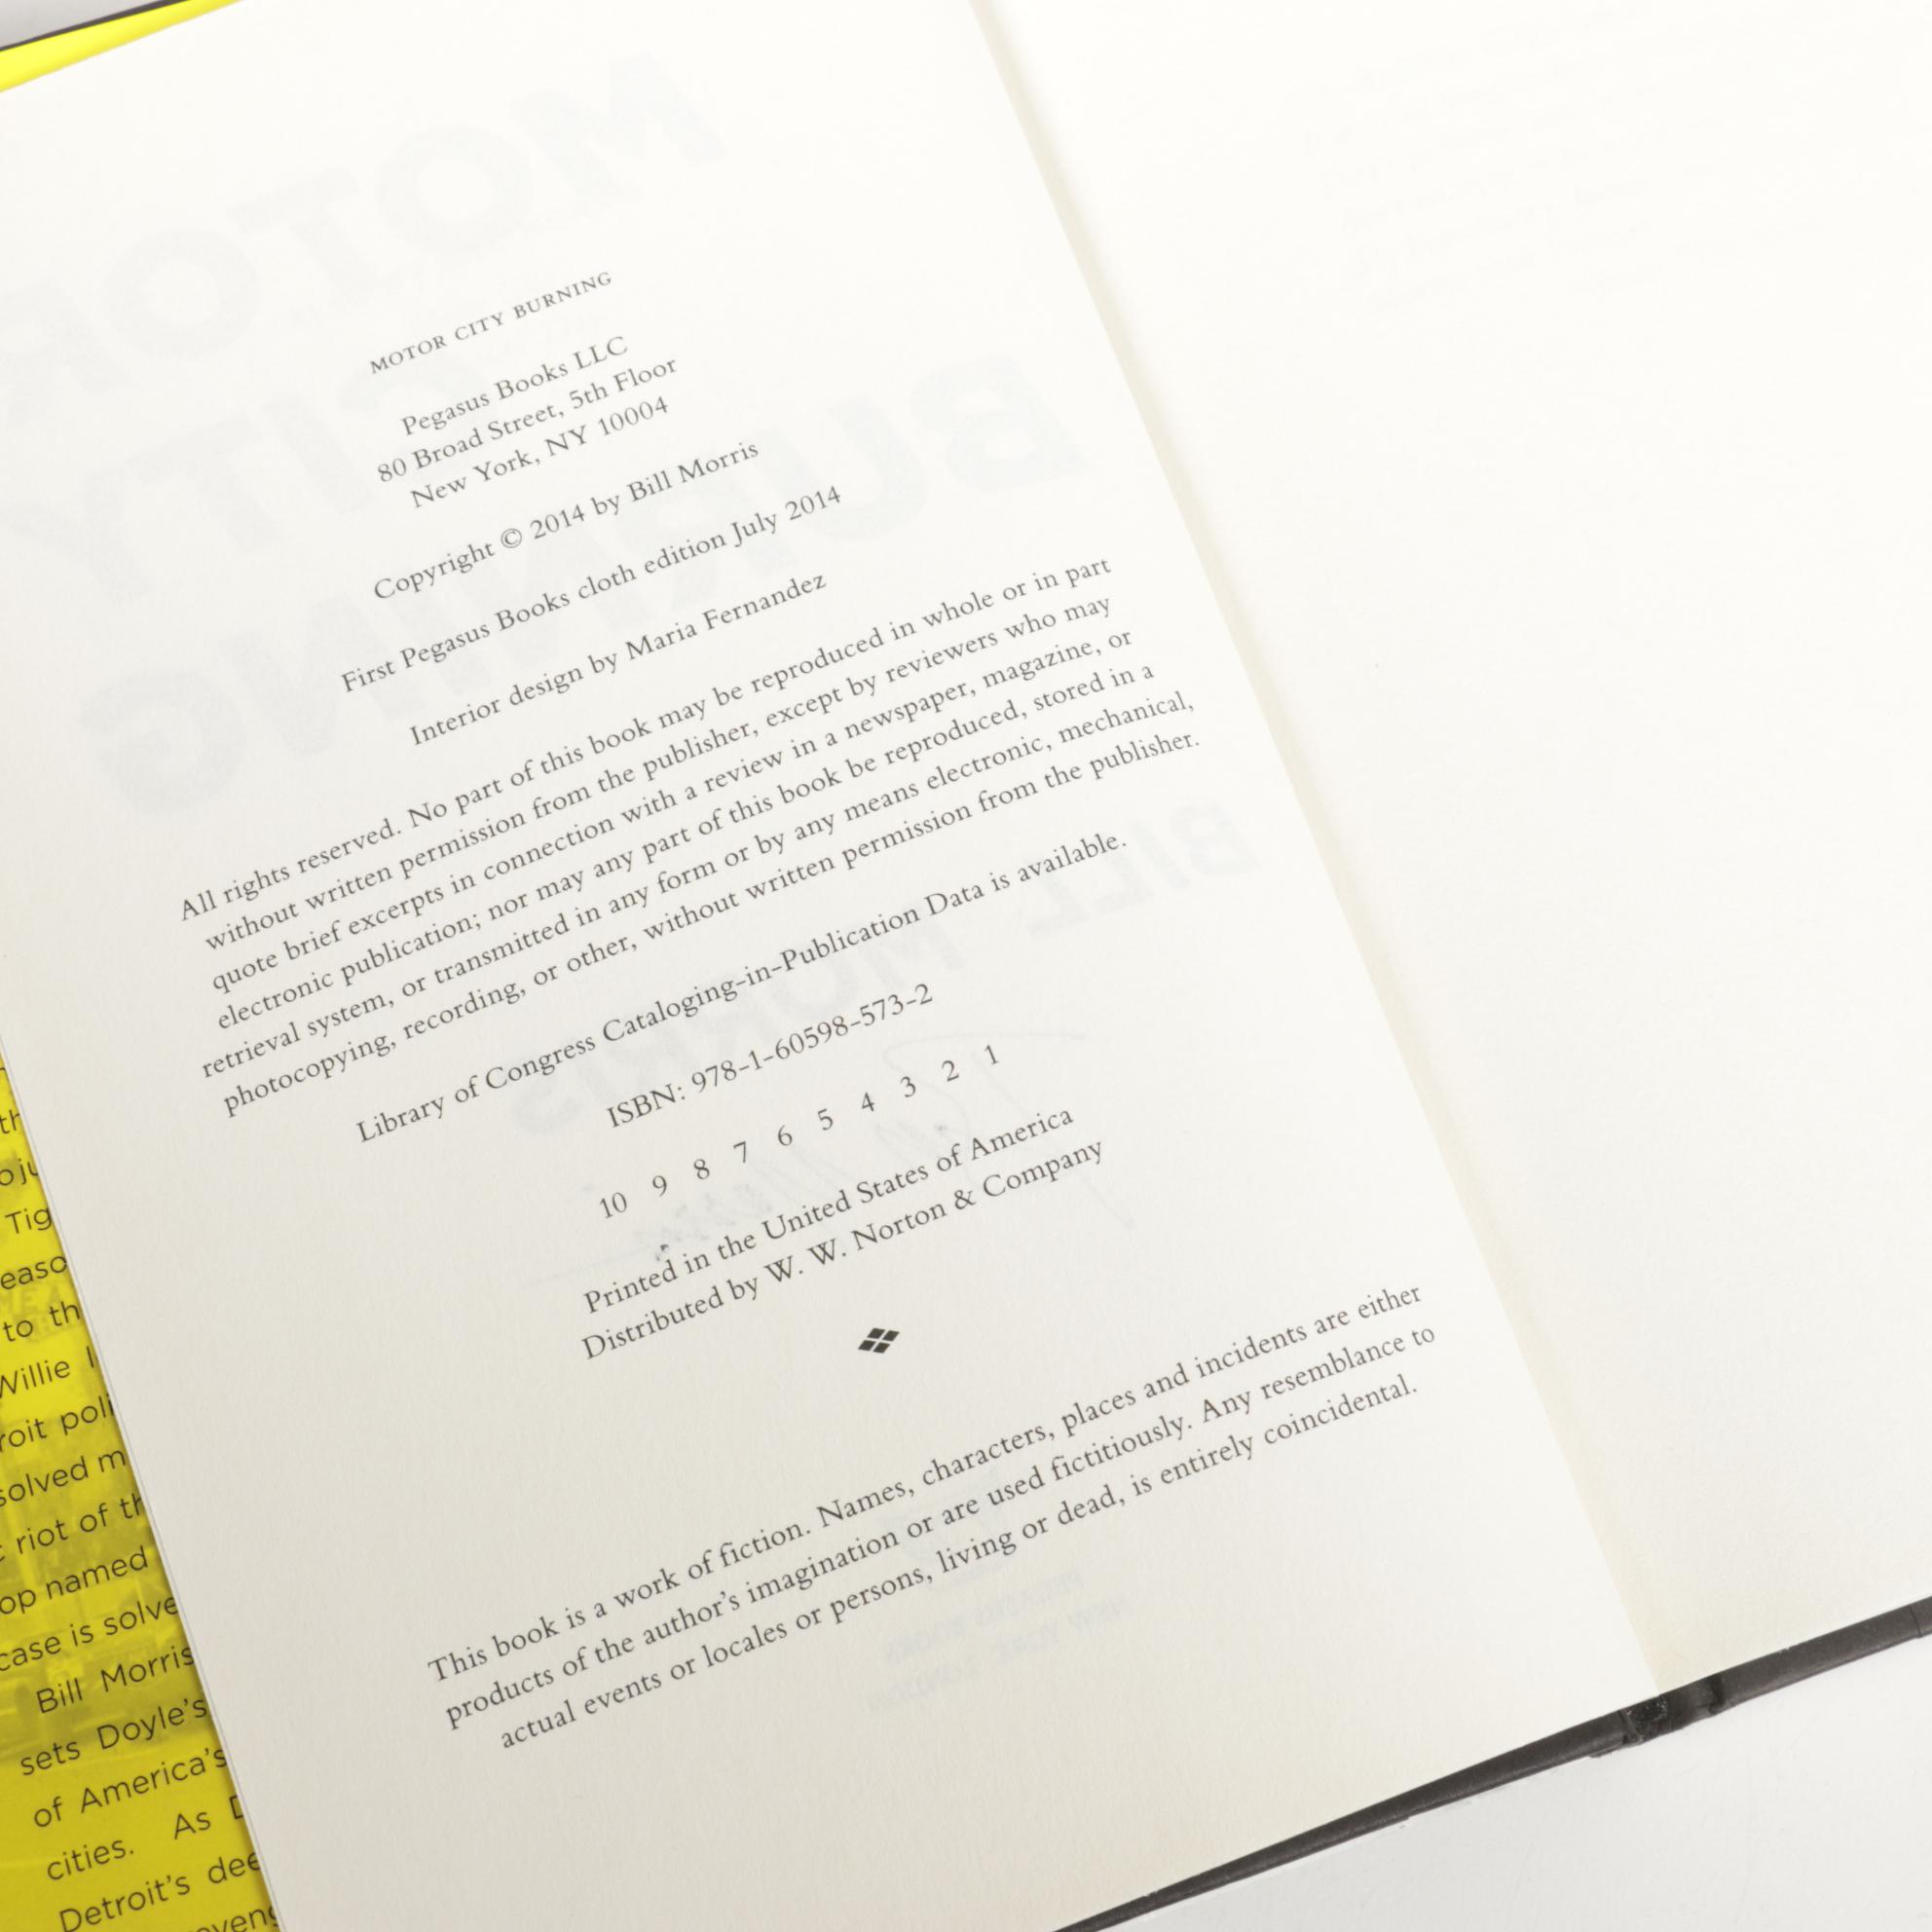 MOTOR CITY BURNING
Pegasus Books LLC
80 Broad Street, 5th Floor
New York, NY 10004
Copyright © 2014 by Bill Morris
First Pegasus Books cloth edition July 2014
Interior design by Maria Fernandez
All rights reserved. No part of this book may be reproduced in whole or in part
without written permission from the publisher, except by reviewers who may
quote brief excerpts in connection with a review in a newspaper, magazine, or
electronic publication; nor may any part of this book be reproduced, stored in a
retrieval system, or transmitted in any form or by any means electronic, mechanical,
photocopying, recording, or other, without written permission from the publisher.
Library of Congress Cataloging-in-Publication Data is available.
ISBN: 978-1-60598-573-2
10 9 8 7 6 5 4 3 2 1
Printed in the United States of America
Distributed by W. W. Norton & Company
This book is a work of fiction. Names, characters, places and incidents are either
products of the author's imagination or are used fictitiously. Any resemblance to
actual events or locales or persons, living or dead, is entirely coincidental.
Tig
to th
Willie
solved m
riot of th
op named
case is solve
Bill Morris
sets Doyle's
of America's
cities. As
Detroit's dee